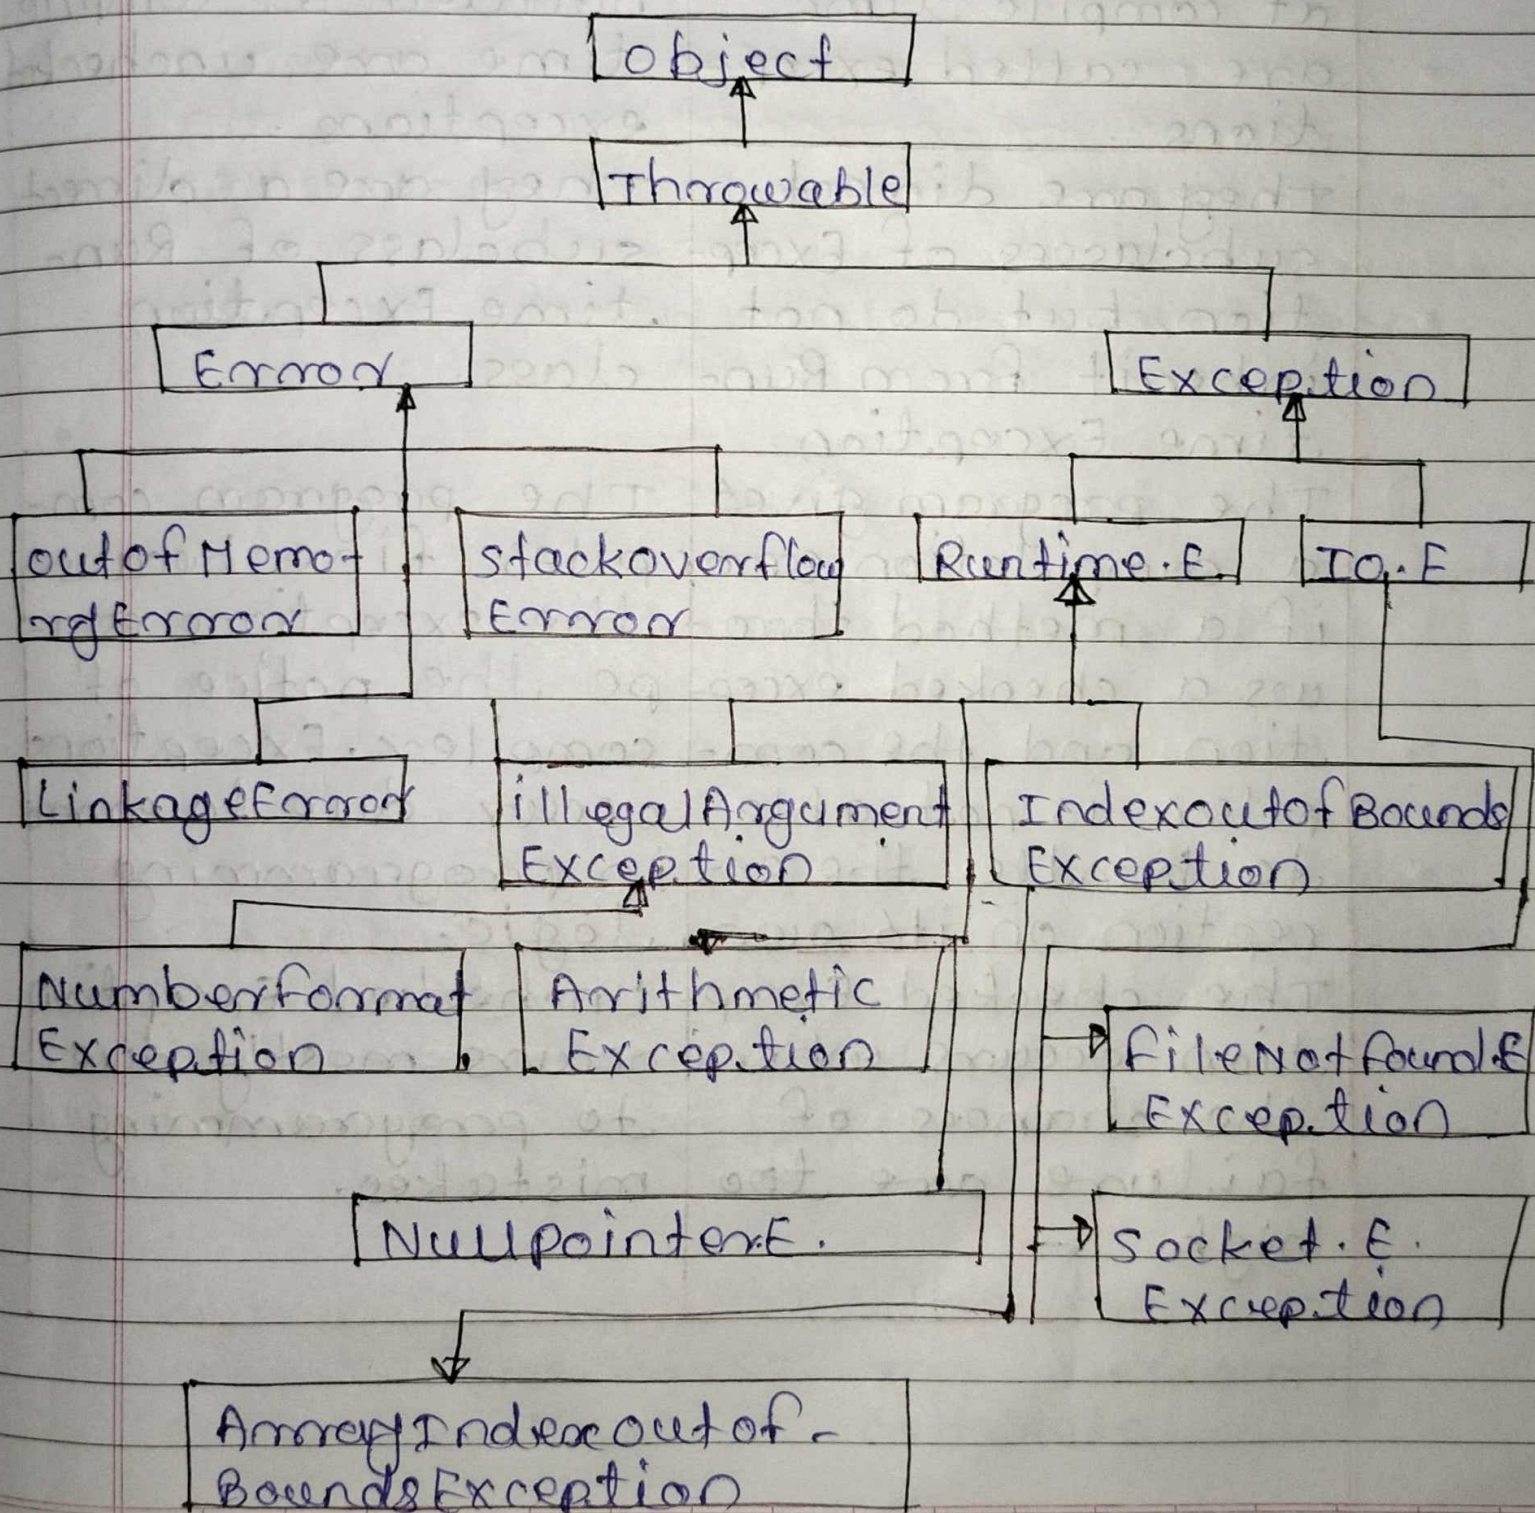 Object
Throwable
Error
Exception
outofMemo
ryError
stackoverflow
Error
Runtime.E.
IO.E
LinkageError
illegalArgument
Exception
IndexoutofBounds
Exception
Numberformat
Exception
Arithmetic
Exception
fileNotfoundE
Exception
NullpointerE.
Socket.E.
Exception
ArrayIndexoutof-
BoundsException